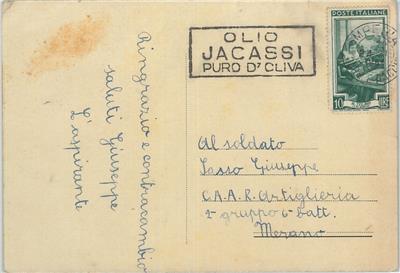 Ringrazio e contracambio
saluti Giuseppe
L'aspirante
OLIO
JACASSI
PURO D'OLIVA
POSTE ITALIANE
10
LIRE
Al soldato
Sasso Giuseppe
C.A.A.R. Artiglieria
1° gruppo 6ª batt.
Merano